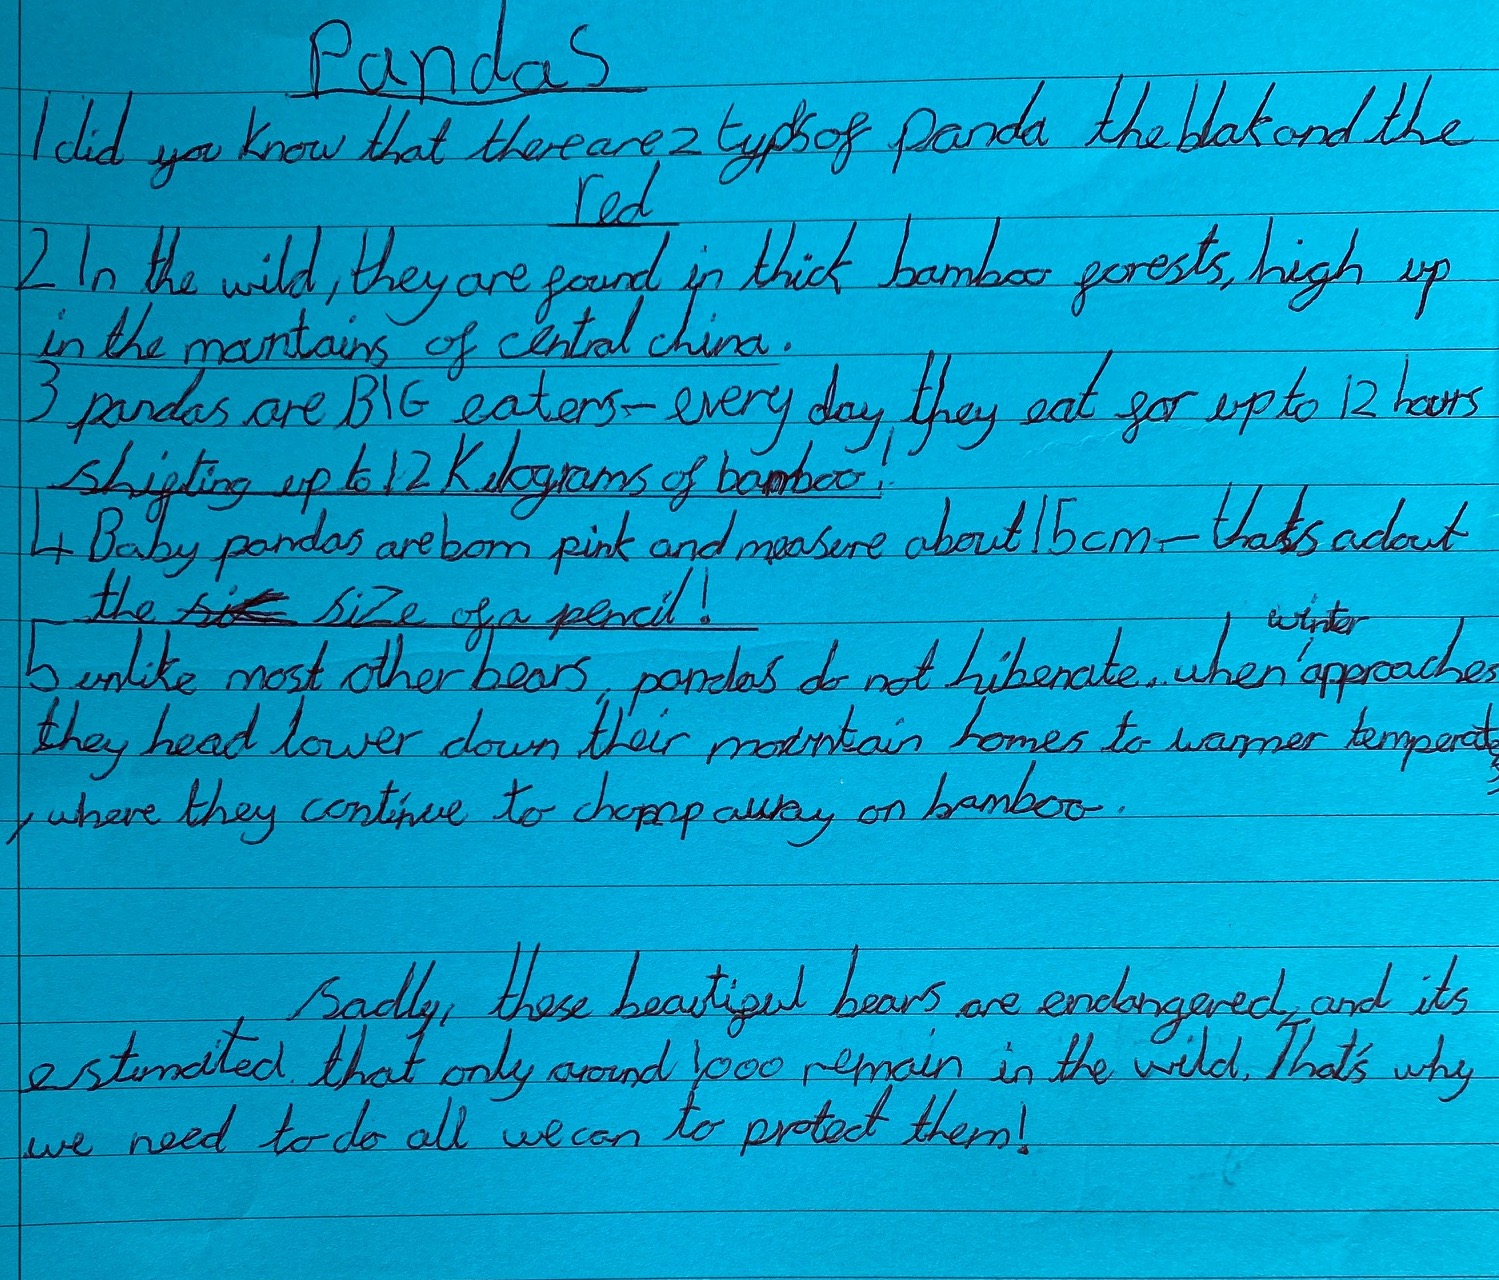 Pandas
1 did you know that there are 2 typs of panda the blak and the
red
2 In the wild, they are found in thick bamboo forests, high up
in the mountains of central china.
3 pandas are BIG eaters - every day, they eat for up to 12 hours
shifting up to 12 Kilograms of bamboo!
4 Baby pandas are born pink and measure about 15cm - thats adout
the size of a pencil!
winter
5 unlike most other bears, pandas do not hibenate. when approaches
they head lower down their mountain homes to warmer temperates
, where they continue to chomp away on bamboo.
Sadly, these beautiful bears are endangered, and its
estimated that only around 1000 remain in the wild. That's why
we need to do all we can to protect them!